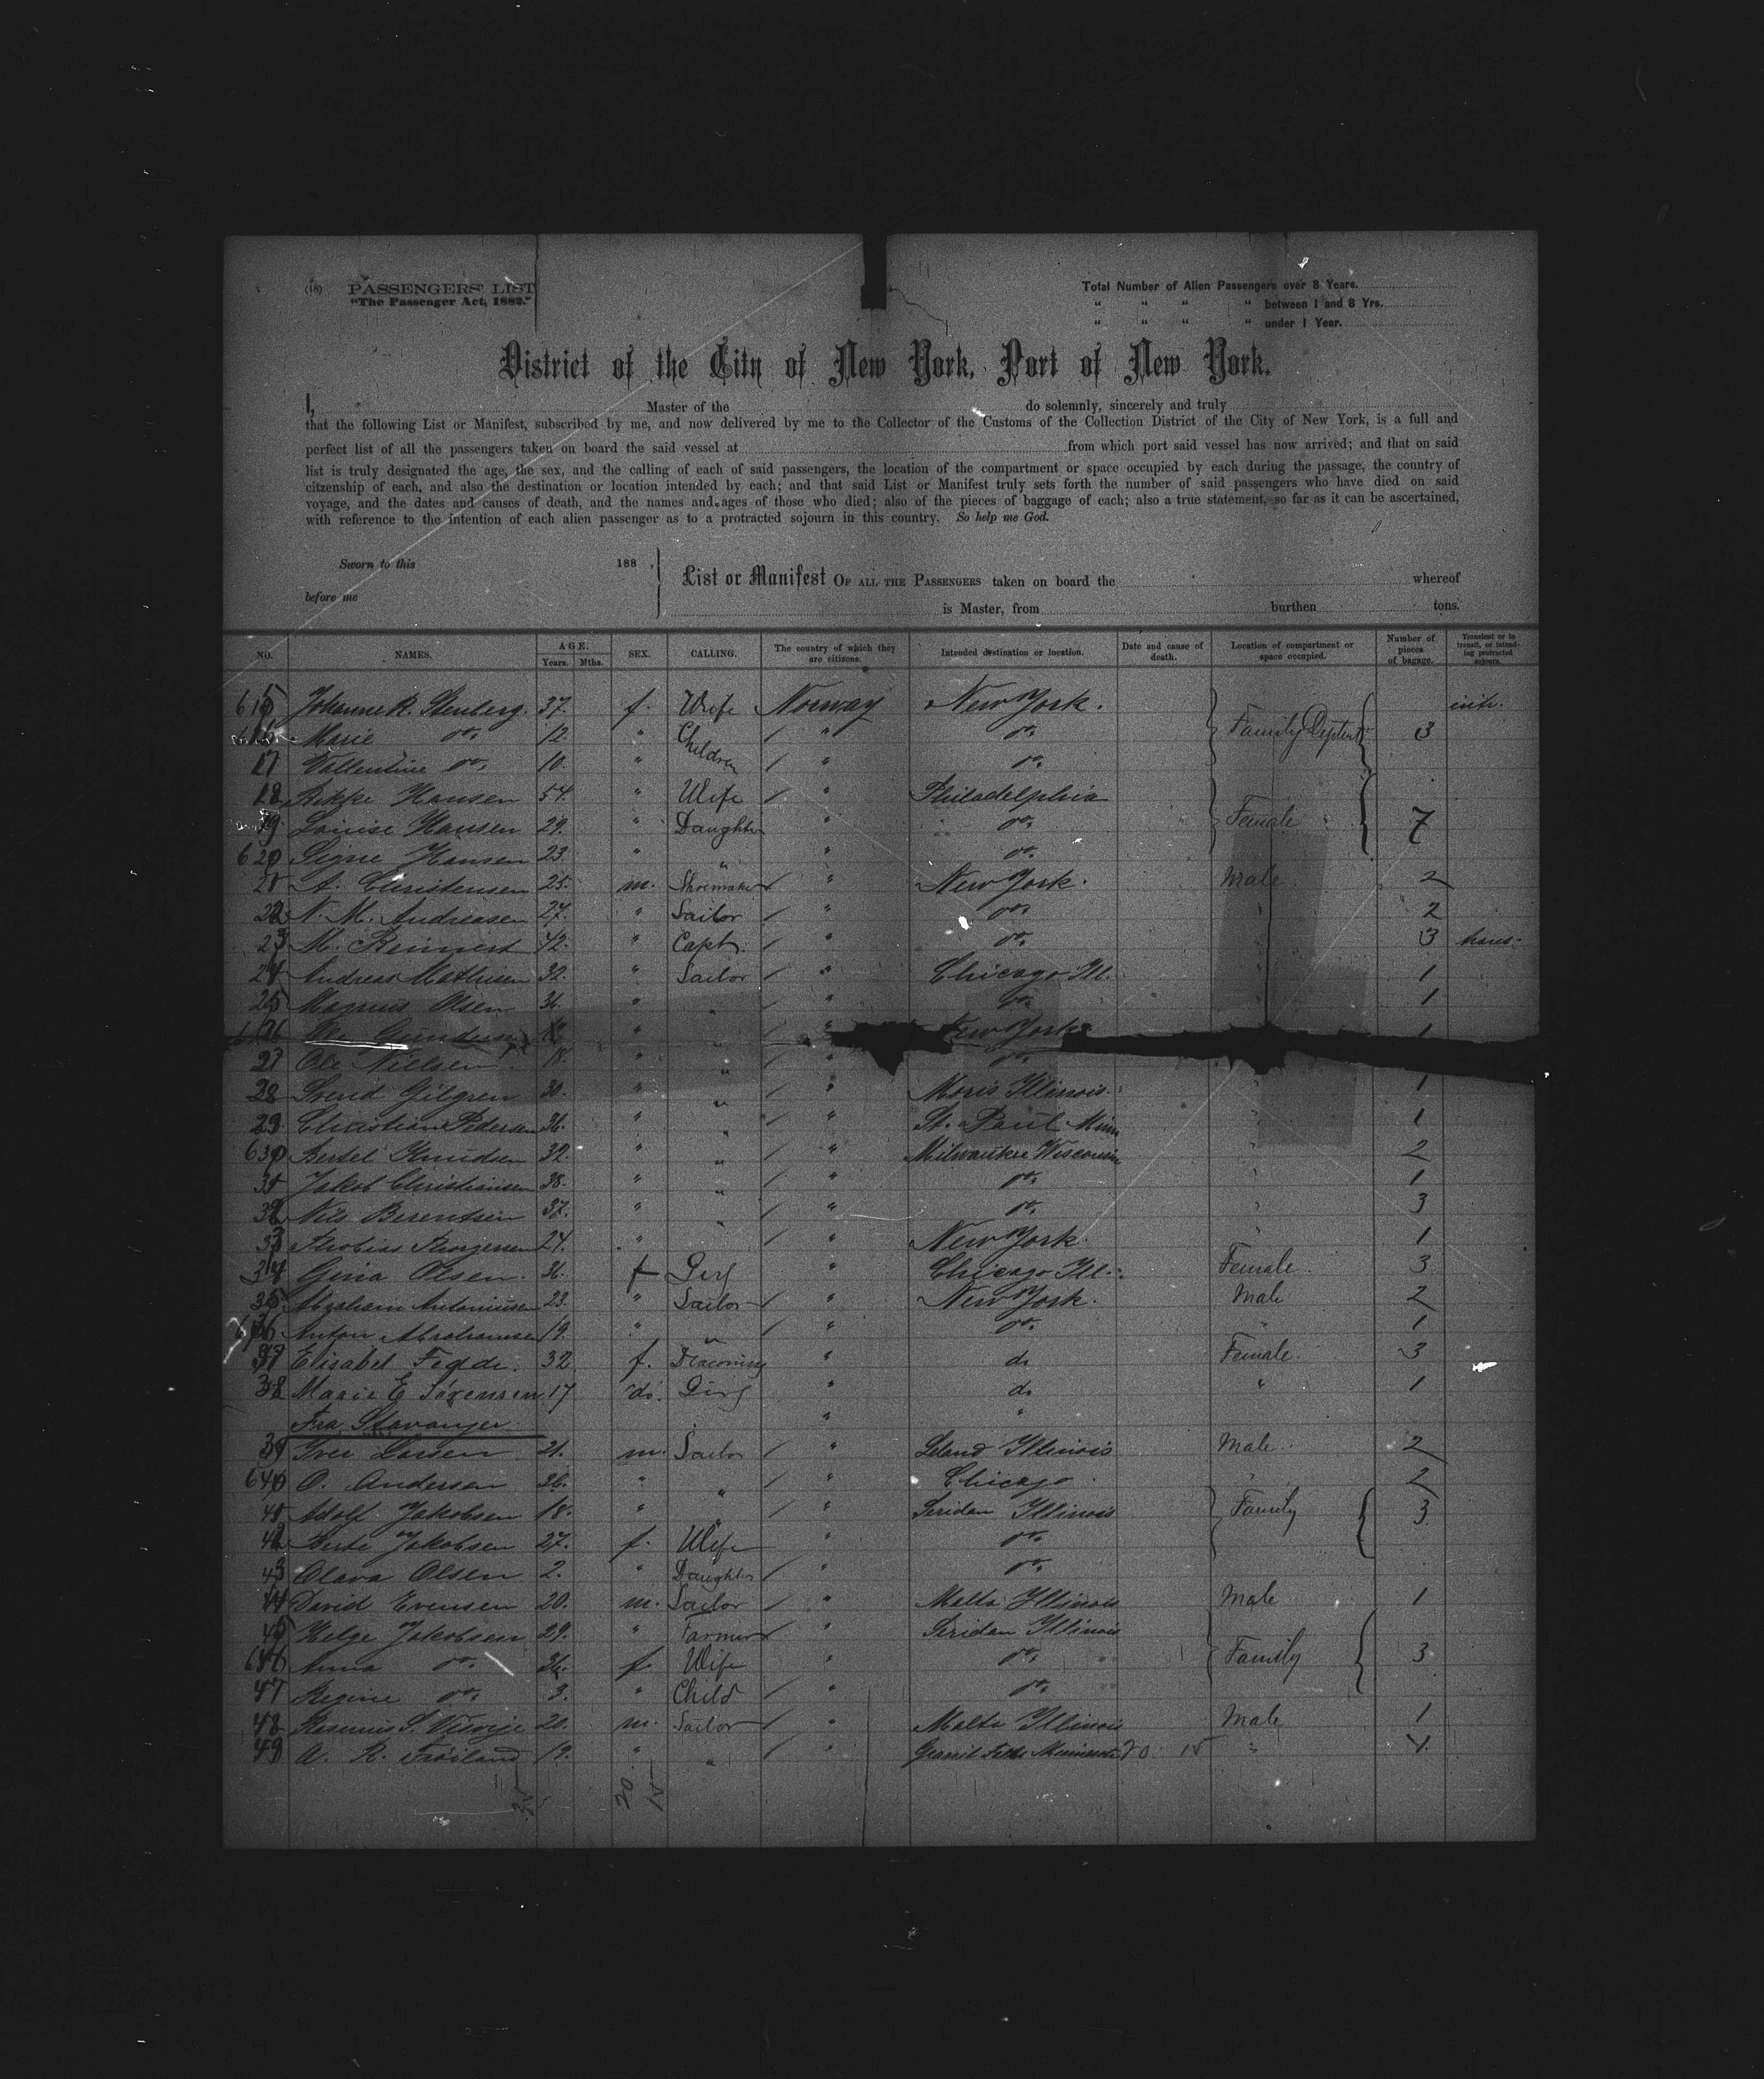 (18) PASSENGERS' LIST
"The Passenger Act, 1882."
Total Number of Alien Passengers over 8 Years.
" " " " between 1 and 8 Yrs.
" " " " under 1 Year.
District of the City of New York, Port of New York.
I, Master of the do solemnly, sincerely and truly
that the following List or Manifest, subscribed by me, and now delivered by me to the Collector of the Customs of the Collection District of the City of New York, is a full and
perfect list of all the passengers taken on board the said vessel at from which port said vessel has now arrived; and that on said
list is truly designated the age, the sex, and the calling of each of said passengers, the location of the compartment or space occupied by each during the passage, the country of
citzenship of each, and also the destination or location intended by each; and that said List or Manifest truly sets forth the number of said passengers who have died on said
voyage, and the dates and causes of death, and the names and ages of those who died; also of the pieces of baggage of each; also a true statement, so far as it can be ascertained,
with reference to the intention of each alien passenger as to a protracted sojourn in this country. So help me God.
Sworn to this 188 ,
before me
List or Manifest OF ALL THE PASSENGERS taken on board the whereof
is Master, from burthen tons.
NO. NAMES. AGE. Years. Mths. SEX. CALLING. The country of which they are citizens. Intended destination or location. Date and cause of death. Location of compartment or space occupied. Number of pieces of bagage. Transient or in transit, or intending protracted sojourn.
615 Johanne R. Stenberg. 37. f. Wife Norway New York.
Marie do. 12. " Children " do. Family 3
17 Vallentine do. 10. " " do.
18 Rikke Hansen 54. " Wife " Philadelphia
19 Louise Hansen 29. " Daughter " do. Female 7
620 Signe Hansen 23. " " " do.
21 A. Christensen 25. m. Shoemaker " New York. Male 2
22 N. M. Andreasen 27. " Sailor " do. " 2
23 M. Reinert 42. " Capt. " do. " 3 trans.
24 Andreas Mathisen 32. " Sailor " Chicago Ill. 1
25 Magnus Olsen 36. " " " do. 1
26 Gundersen " " " New York 1
27 Ole Nielsen 18. " " " do.
28 Svend Gilgren 30. " " " Moris Illinois. 1
29 Christian Pedersen 36. " " " St. Paul Minn 1
630 Bertel Knudsen 32. " " " Milwaukee Wisconsin 2
31 Jakob Christiansen 38. " " " do. 1
32 Nils Berentsen 37. " " " do. 3
33 Thobias 24. " " " New York. 1
34 Gina Olsen. 36. f Girl " Chicago Ill. Female 3
35 Abraham Antoniusen 23. " Sailor " New York. Male 2
36 Anton Abrahamsen 19. " " " do. " 1
37 Elisabet Fedde. 32 f. " do Female. 3
38 Marie E Sørensen 17 do. Girl " do " 1
Fra Stavanger " "
39 Iver Larsen 21. m. Sailor " Leland Illinois Male 2
640 O. Andersen 36. " " " Chicago " 2
41 Adolf Jakobsen 18. " " " Seridan Illinois Family 3
42 Berte Jakobsen 27. f. Wife " do.
43 Olava Olsen 2. " Daughter " do.
44 David Evensen 20. m. Sailor " Malta Illinois Male 1
45 Helge Jakobsen 29. " Farmer " Seridan Illinois
646 Anna do. 36. f Wife " do. Family 3
47 Regine do. 3. " Child " do.
48 Rasmus S. 20. m. Sailor " Malta Illinois Male 1
49 A. R. Frøiland 19. " " " 20 15 "
20 15